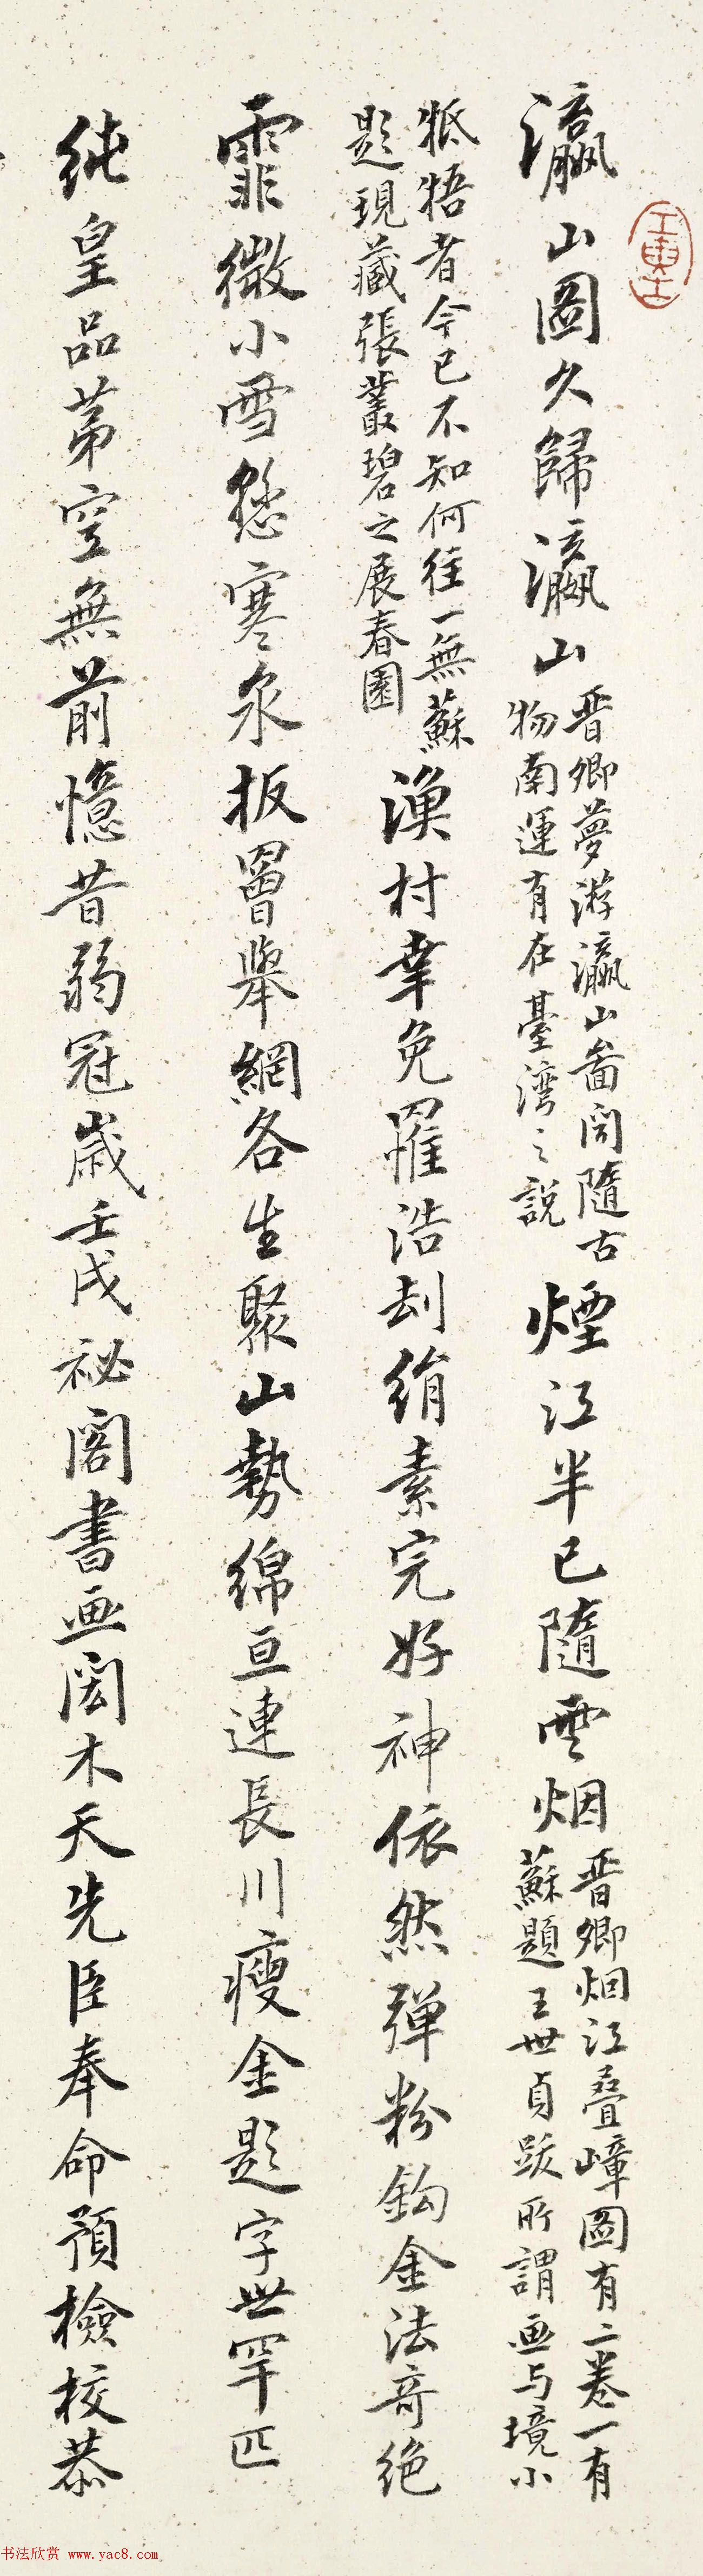 瀛山圖久歸瀛山
晋卿夢游瀛山畵聞隨古
物南運有在臺灣之說
煙江半已隨雲烟
晋卿烟江叠嶂圖有二卷一有
蘇題王世貞跋所謂画与境小
牴牾者今已不知何往一無蘇
題現藏張叢碧之展春園
漁村幸免罹浩刦絹素完好神依然弹粉鈎金法奇绝
霏微小雪愁寒泉扳罾舉網各生聚山勢綿亘連長川瘦金題字世罕匹
純皇品第空無前憶昔弱冠歲壬戌祕閣書画閎木天先臣奉命預檢校恭
書法欣赏 www.yac8.com